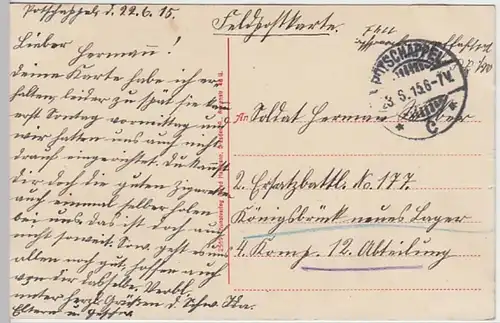 Potschappel, d. 22.6.15.
Lieber Hermann!
deine Karte habe ich er-
halten, leider zu spät sie kam
erst Sontag vormittag und
wir hatten uns auch nicht
drauf eingerichtet. du kannst
dir doch die guten Zigaretten
auch einmal selber holen
bei uns. das ist doch auch
nicht soweit. Sow. geht es uns
allen noch gut, hoffen auch
von dir dasselbe. Verbl.
unter herzl. Grüßen d. Schw.
Eltern u. Geschw.
Feldpostkarte.
POTSCHAPPEL
6.15.6-7V.
* C *
An Soldat Herman
2. Ersatzbattl. No. 177.
Königsbrück neues Lager
4. Komp. 12. Abteilung